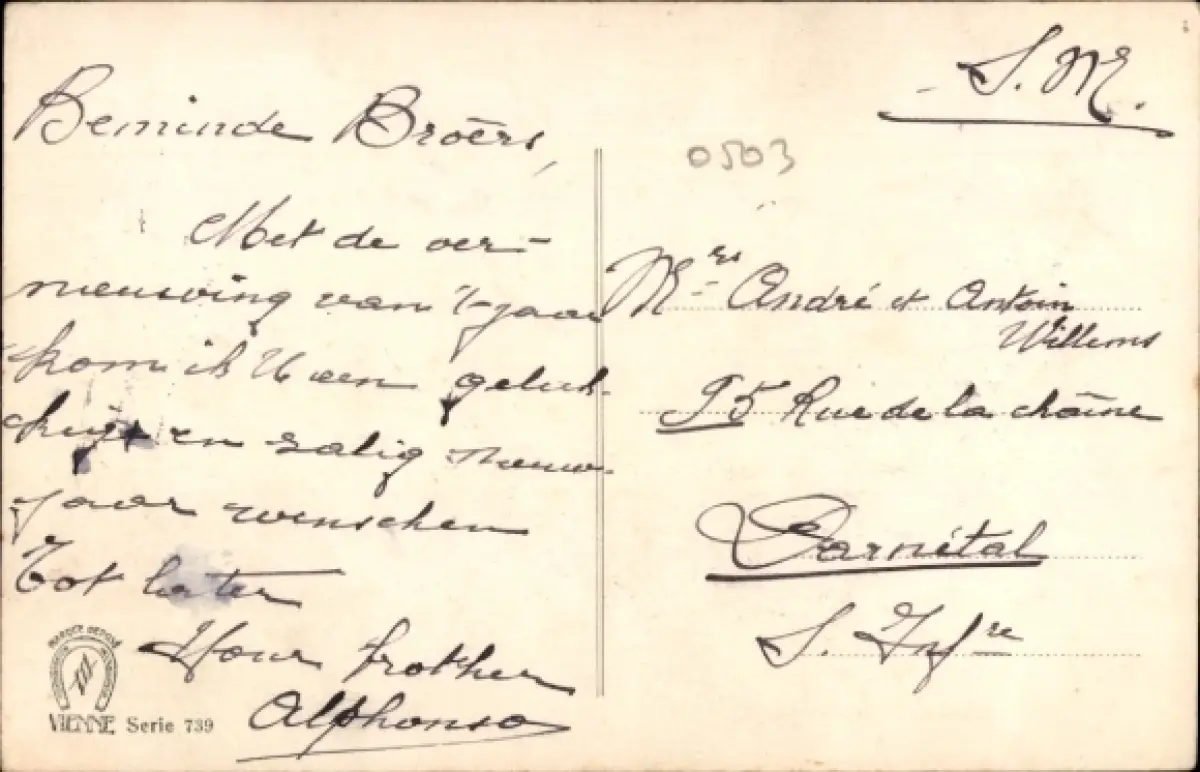 Beminde Broërs,
Met de ver-
nieuwing van 't jaar
kom ik U een geluk-
kig en zalig nieuw-
jaar wenschen
Tot later
Your brother
Alphonso
MARQUE DÉPOSÉ
VIENNE Serie 739
S. M.
0503
Mrs André et Antoin
Willems
95 Rue de la chaîne
Darnétal
S. Infre